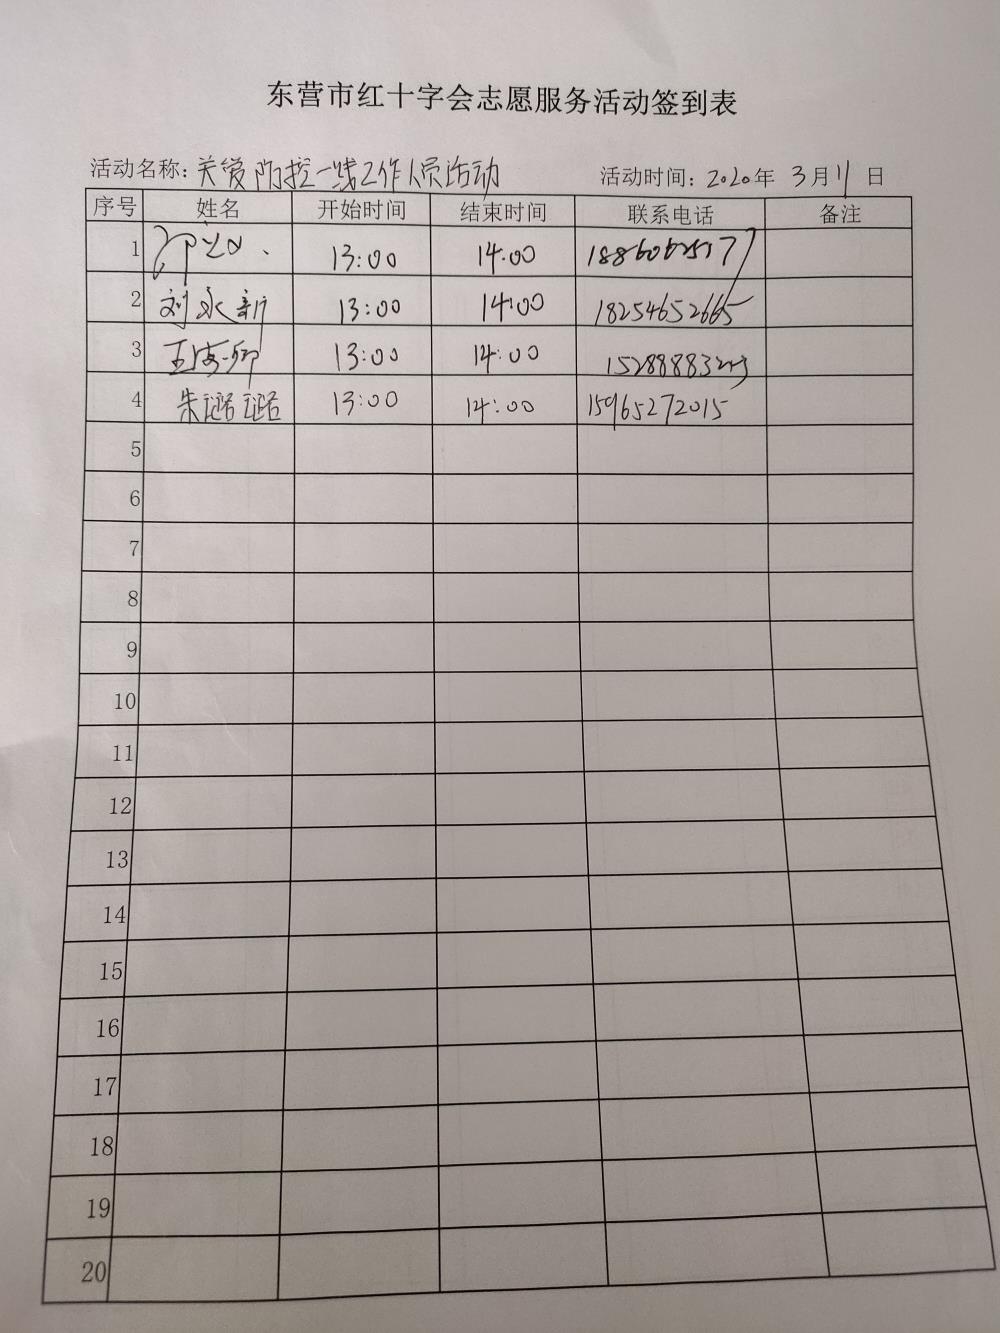 东营市红十字会志愿服务活动签到表
活动名称: 关爱防控一线工作人员活动 活动时间: 2020年 3月11日
序号 姓名 开始时间 结束时间 联系电话 备注
1 13:00 14:00
2 刘永新 13:00 14:00 18254652665
3 13:00 14:00
4 朱璐璐 13:00 14:00 15965272015
5
6
7
8
9
10
11
12
13
14
15
16
17
18
19
20